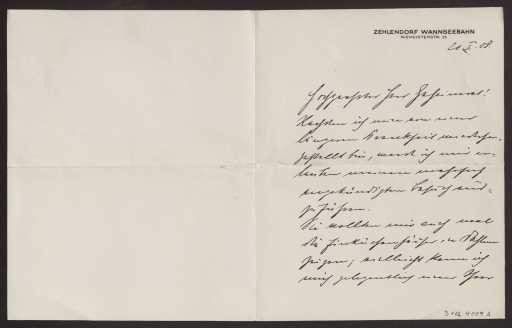 ZEHLENDORF WANNSEEBAHN
20 X. 08
Hochgeehrter Herr Geheimrat!
Nachdem ich nun von einer
längeren Krankheit wiederher-
gestellt bin, werde ich mir er-
lauben meinen mehrfach
angekündigten Besuch aus-
zuführen.
Sie wollten mir auch mal
die Einküchenhäuser in Dahlem
zeigen; vielleicht kann ich
mich gelegentlich einer Ihrer